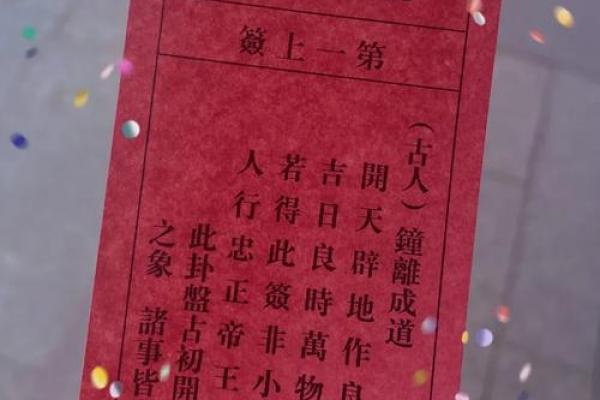 第一上簽
（古人）鐘離成道
開天辟地作良
吉日良時萬物
若得此簽非小
人行忠正帝王
此卦盤古初開
之象 諸事皆